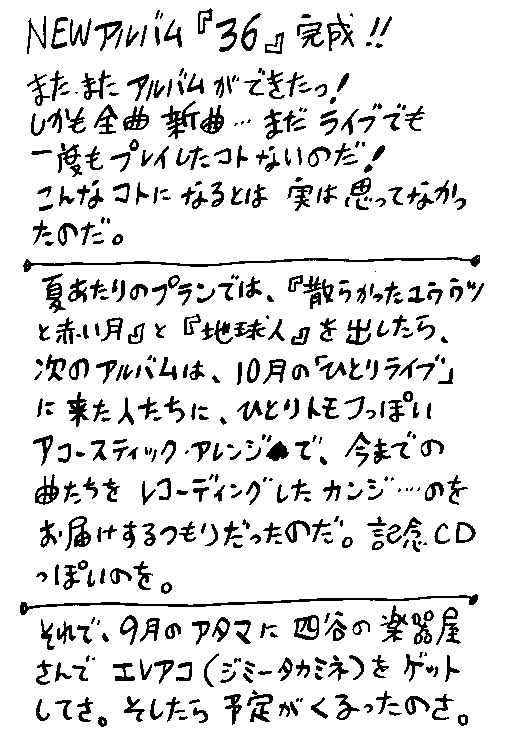 NEWアルバム『36』完成!!
また.またアルバムができたっ!
しかも全曲新曲…まだライブでも
一度もプレイしたコトないのだ!
こんなコトになるとは実は思ってなかっ
たのだ。
夏あたりのプランでは、『散らかったユウウツ
と赤い月』と『地球人』を出したら、
次のアルバムは、10月の「ひとりライブ」
に来た人たちに、ひとりトモフっぽい
アコースティック・アレンジ♠で、今までの
曲たちをレコーディングしたカンジ…のを
お届けするつもりだったのだ。記念CD
っぽいのを。
それで、9月のアタマに四谷の楽器屋
さんでエレアコ(ジミータカミネ)をゲット
してさ。そしたら予定がくるったのさ。